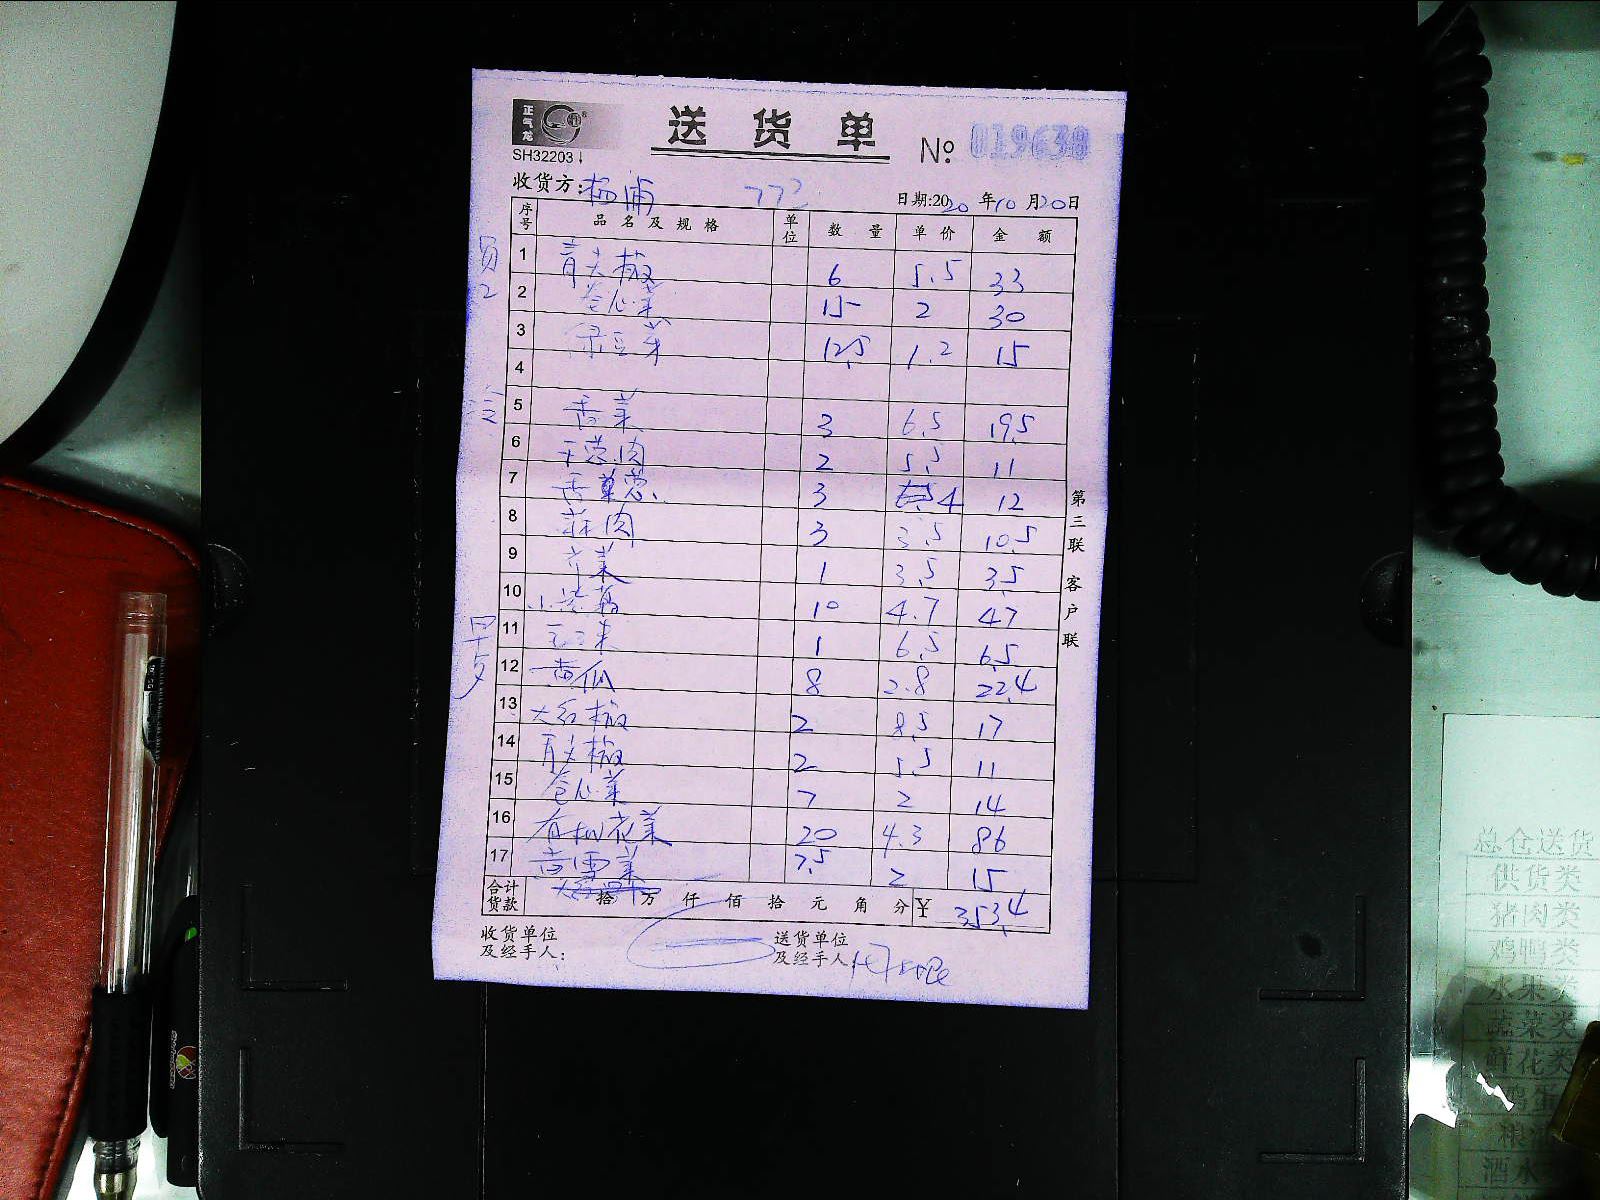 正气龙
送 货 单
SH32203
№ 019630
收货方: 杨浦 772 日期:2020年10月20日
序号 品名及规格 单位 数量 单价 金额
员工
1 青尖椒 6 5.5 33
2 卷心菜 15 2 30
3 绿豆芽 12.5 1.2 15
4
冷
5 香菜 3 6.5 19.5
6 干葱肉 2 5.5 11
7 香葱 3 4 12
8 蒜肉 3 3.5 10.5
9 芹菜 1 3.5 3.5
10 10 4.7 47
11 1 6.5 6.5
12 黄瓜 8 2.8 22.4
13 大红椒 2 8.5 17
14 青尖椒 2 5.5 11
15 卷心菜 7 2 14
16 有机花菜 20 4.3 86
17 7.5 2 15
合计货款 拾 万 仟 佰 拾 元 角 分 ¥ 353.4
收货单位及经手人:
送货单位及经手人
第三联 客户联
总仓送货
供货类
猪肉类
鸡鸭类
水果类
蔬菜类
鲜花类
鸡蛋
粮油
酒水